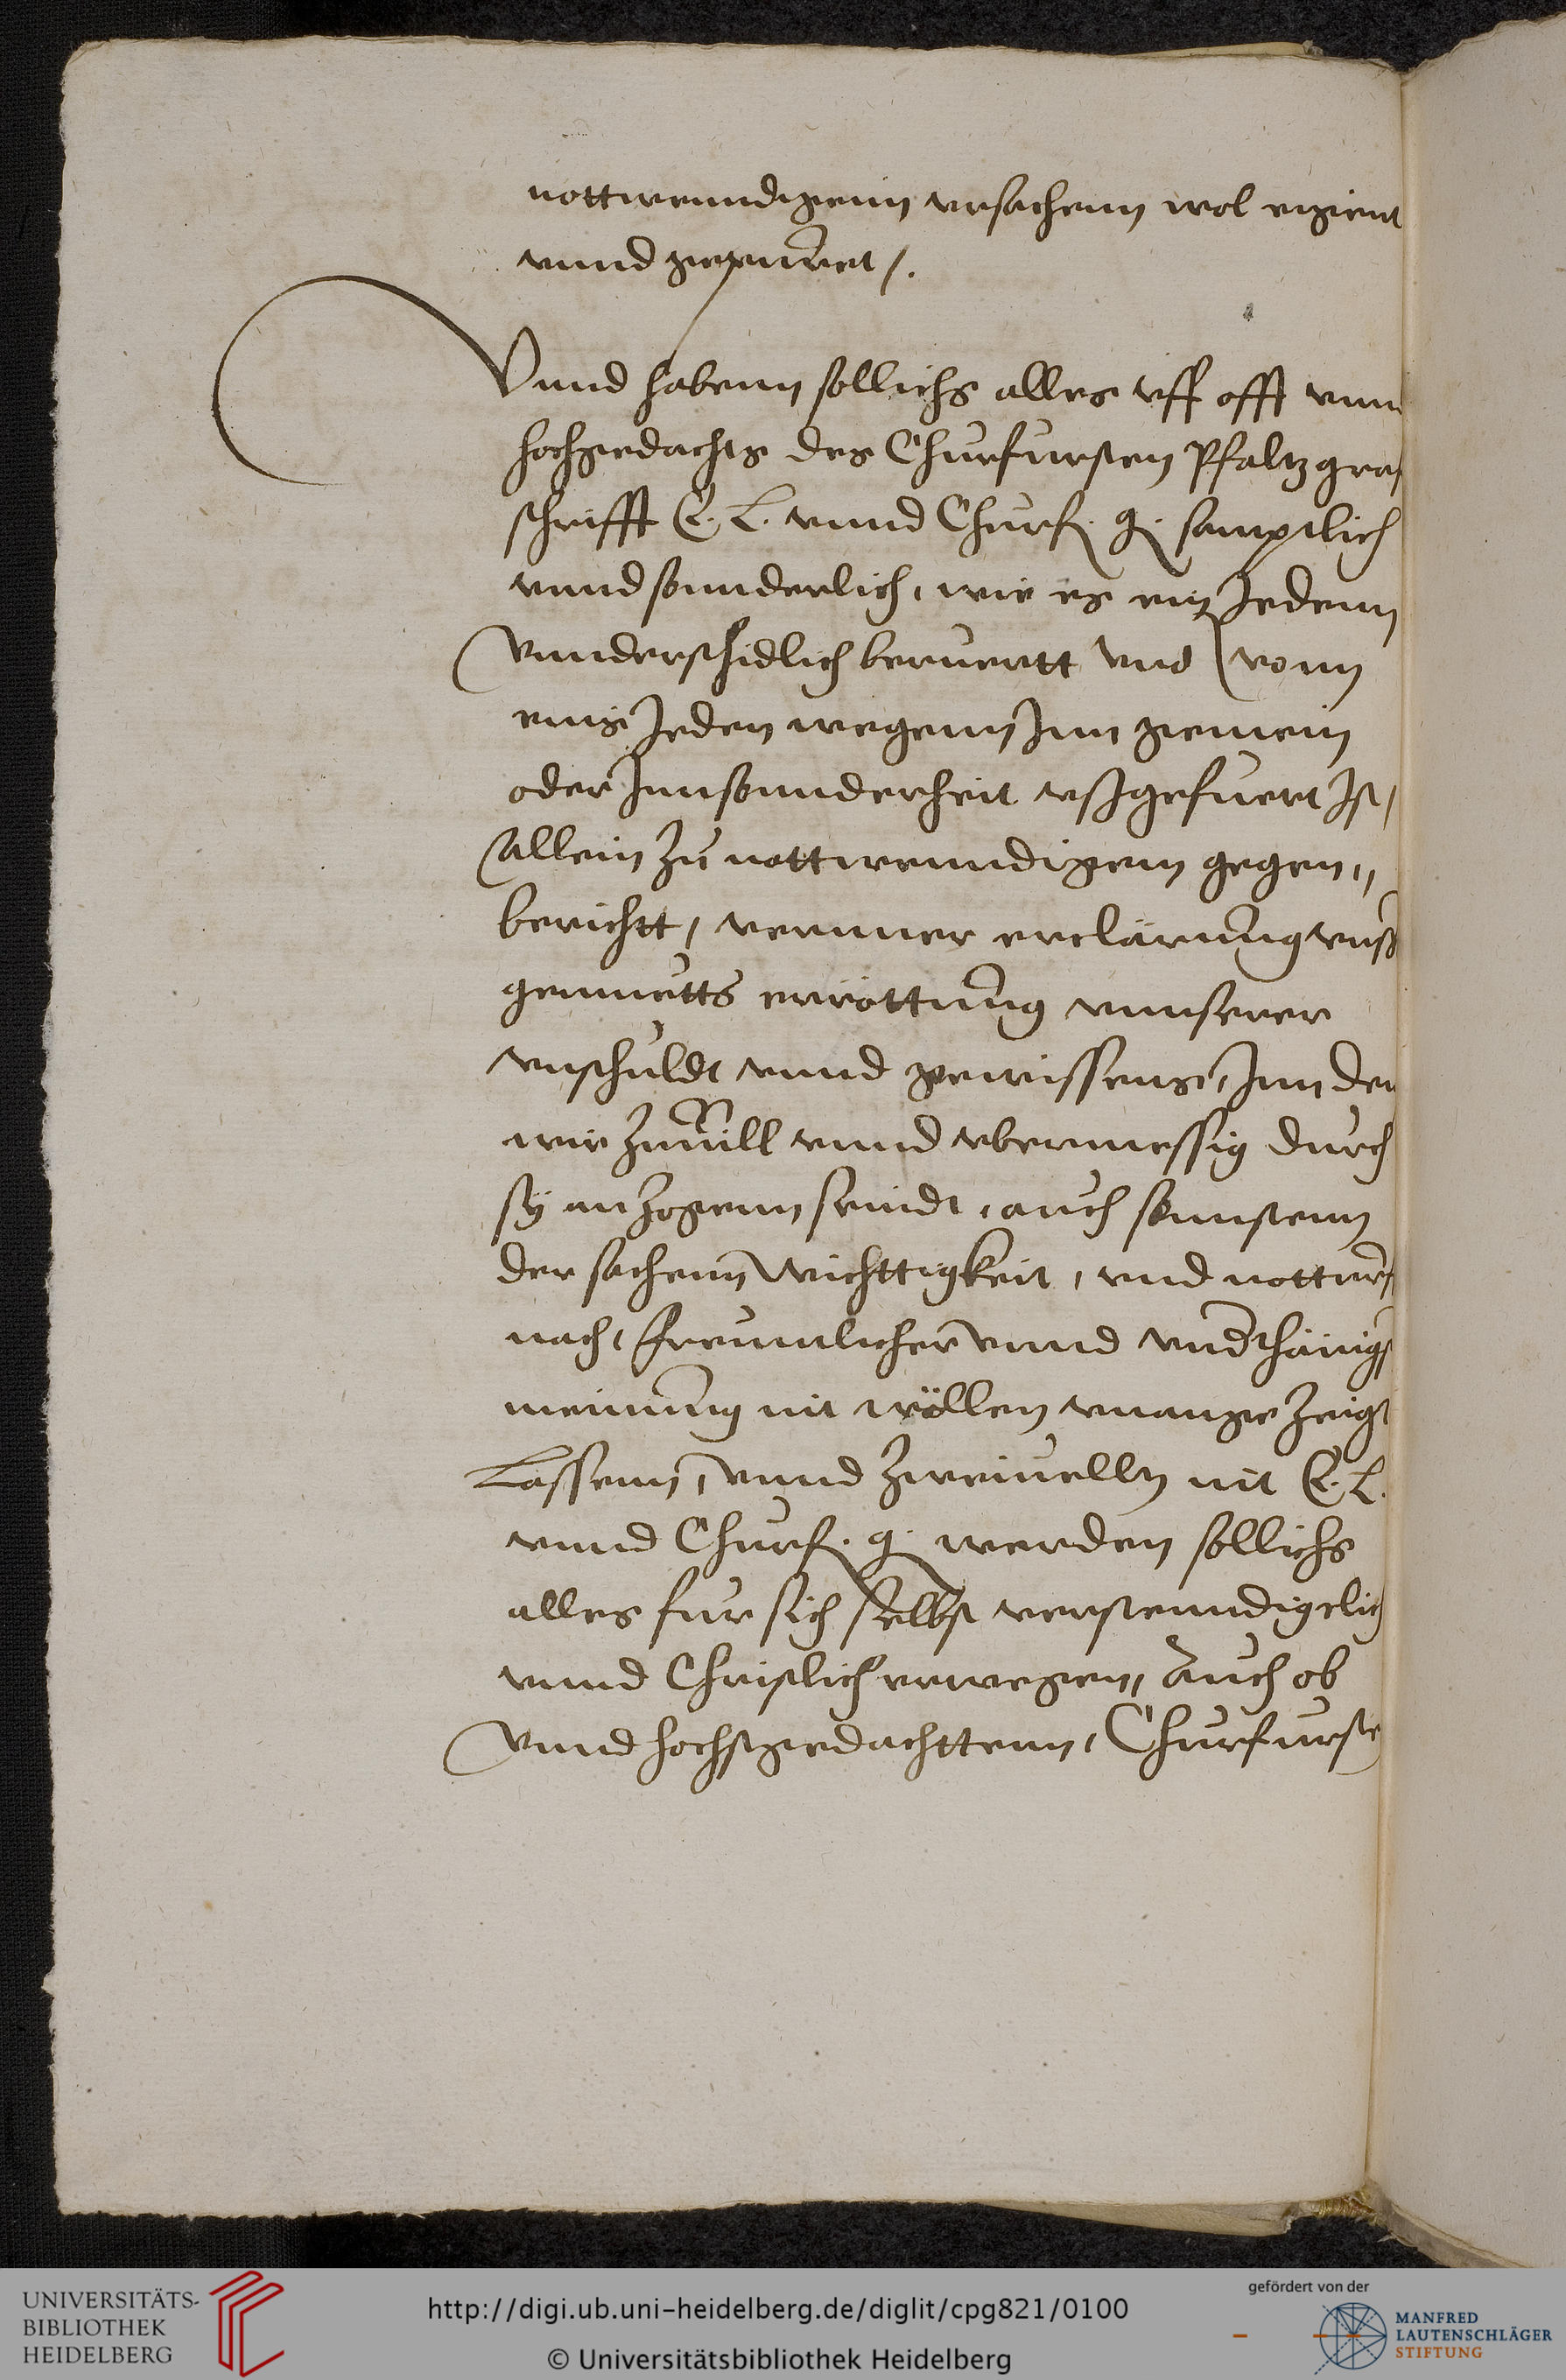 nottwenndigenn vrsachenn wol eigent
vnnd gepuret /.
Vnnd habenn sollichs alles vff offt vnn
hochgedachts des Churfursten Pfaltzgra
schrifft E. L. vnnd Churf. g. samptlich
vnnd sonnderlich, wie es ein Jedenn
vnnderschidlich beruertt vnd vonn
eins Jeden wegenn Jnn gemein
oder Jnnsonnderheit vßgefuert Jst,
allein zu nottwenndigem gegen,,
bericht, vernner erclärung vnß
gemuetts errottung vnnserer
vnschuldt vnnd gewissens, Jnn den
wir zuuill vnnd vbermessig durch
sÿ anzogenn seindt, auch sonnstenn
der sachenn Wichttigkeit, vnd notturf
nach, freuntlicher vnnd vnd'thänig
meinung nit wöllen vnangezeigt
Lassenn, vnnd zweiuelln nit E. L.
vnnd Churf. g. werden sollichs
alles fur sich selbst verstenndigclich
vnnd Christlich erwegen, Auch ob
vnnd hochstgedachttenn, Churfurste
UNIVERSITÄTS-
BIBLIOTHEK
HEIDELBERG
http://digi.ub.uni-heidelberg.de/diglit/cpg821/0100
© Universitätsbibliothek Heidelberg
gefördert von der
MANFRED
LAUTENSCHLÄGER
STIFTUNG